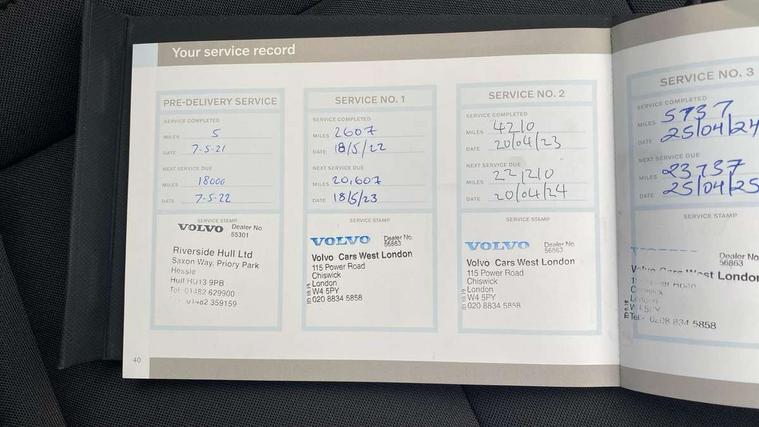 Your service record
PRE-DELIVERY SERVICE
SERVICE COMPLETED
MILES 5
DATE 7-5-21
NEXT SERVICE DUE
MILES 18000
DATE 7-5-22
SERVICE STAMP
VOLVO Dealer No
55301
Riverside Hull Ltd
Saxon Way, Priory Park
Hessle
Hull HU13 9PB
Tel 01482 629900
01482 359159
SERVICE NO. 1
SERVICE COMPLETED
MILES 2607
DATE 18/5/22
NEXT SERVICE DUE
MILES 20,607
DATE 18/5/23
SERVICE STAMP
VOLVO Dealer No.
56863
Volvo Cars West London
115 Power Road
Chiswick
London
W4 5PY
020 8834 5858
SERVICE NO. 2
SERVICE COMPLETED
MILES 4210
DATE 20/04/23
NEXT SERVICE DUE
MILES 22,210
DATE 20/04/24
SERVICE STAMP
VOLVO Dealer No.
56863
Volvo Cars West London
115 Power Road
Chiswick
London
W4 5PY
020 8834 5858
SERVICE NO. 3
SERVICE COMPLETED
MILES 5737
DATE 25/04/24
NEXT SERVICE DUE
MILES 23,737
DATE 25/04/25
SERVICE STAMP
Dealer No
56863
West London
W4 5PY
Tel:- 0208 834 5858
40